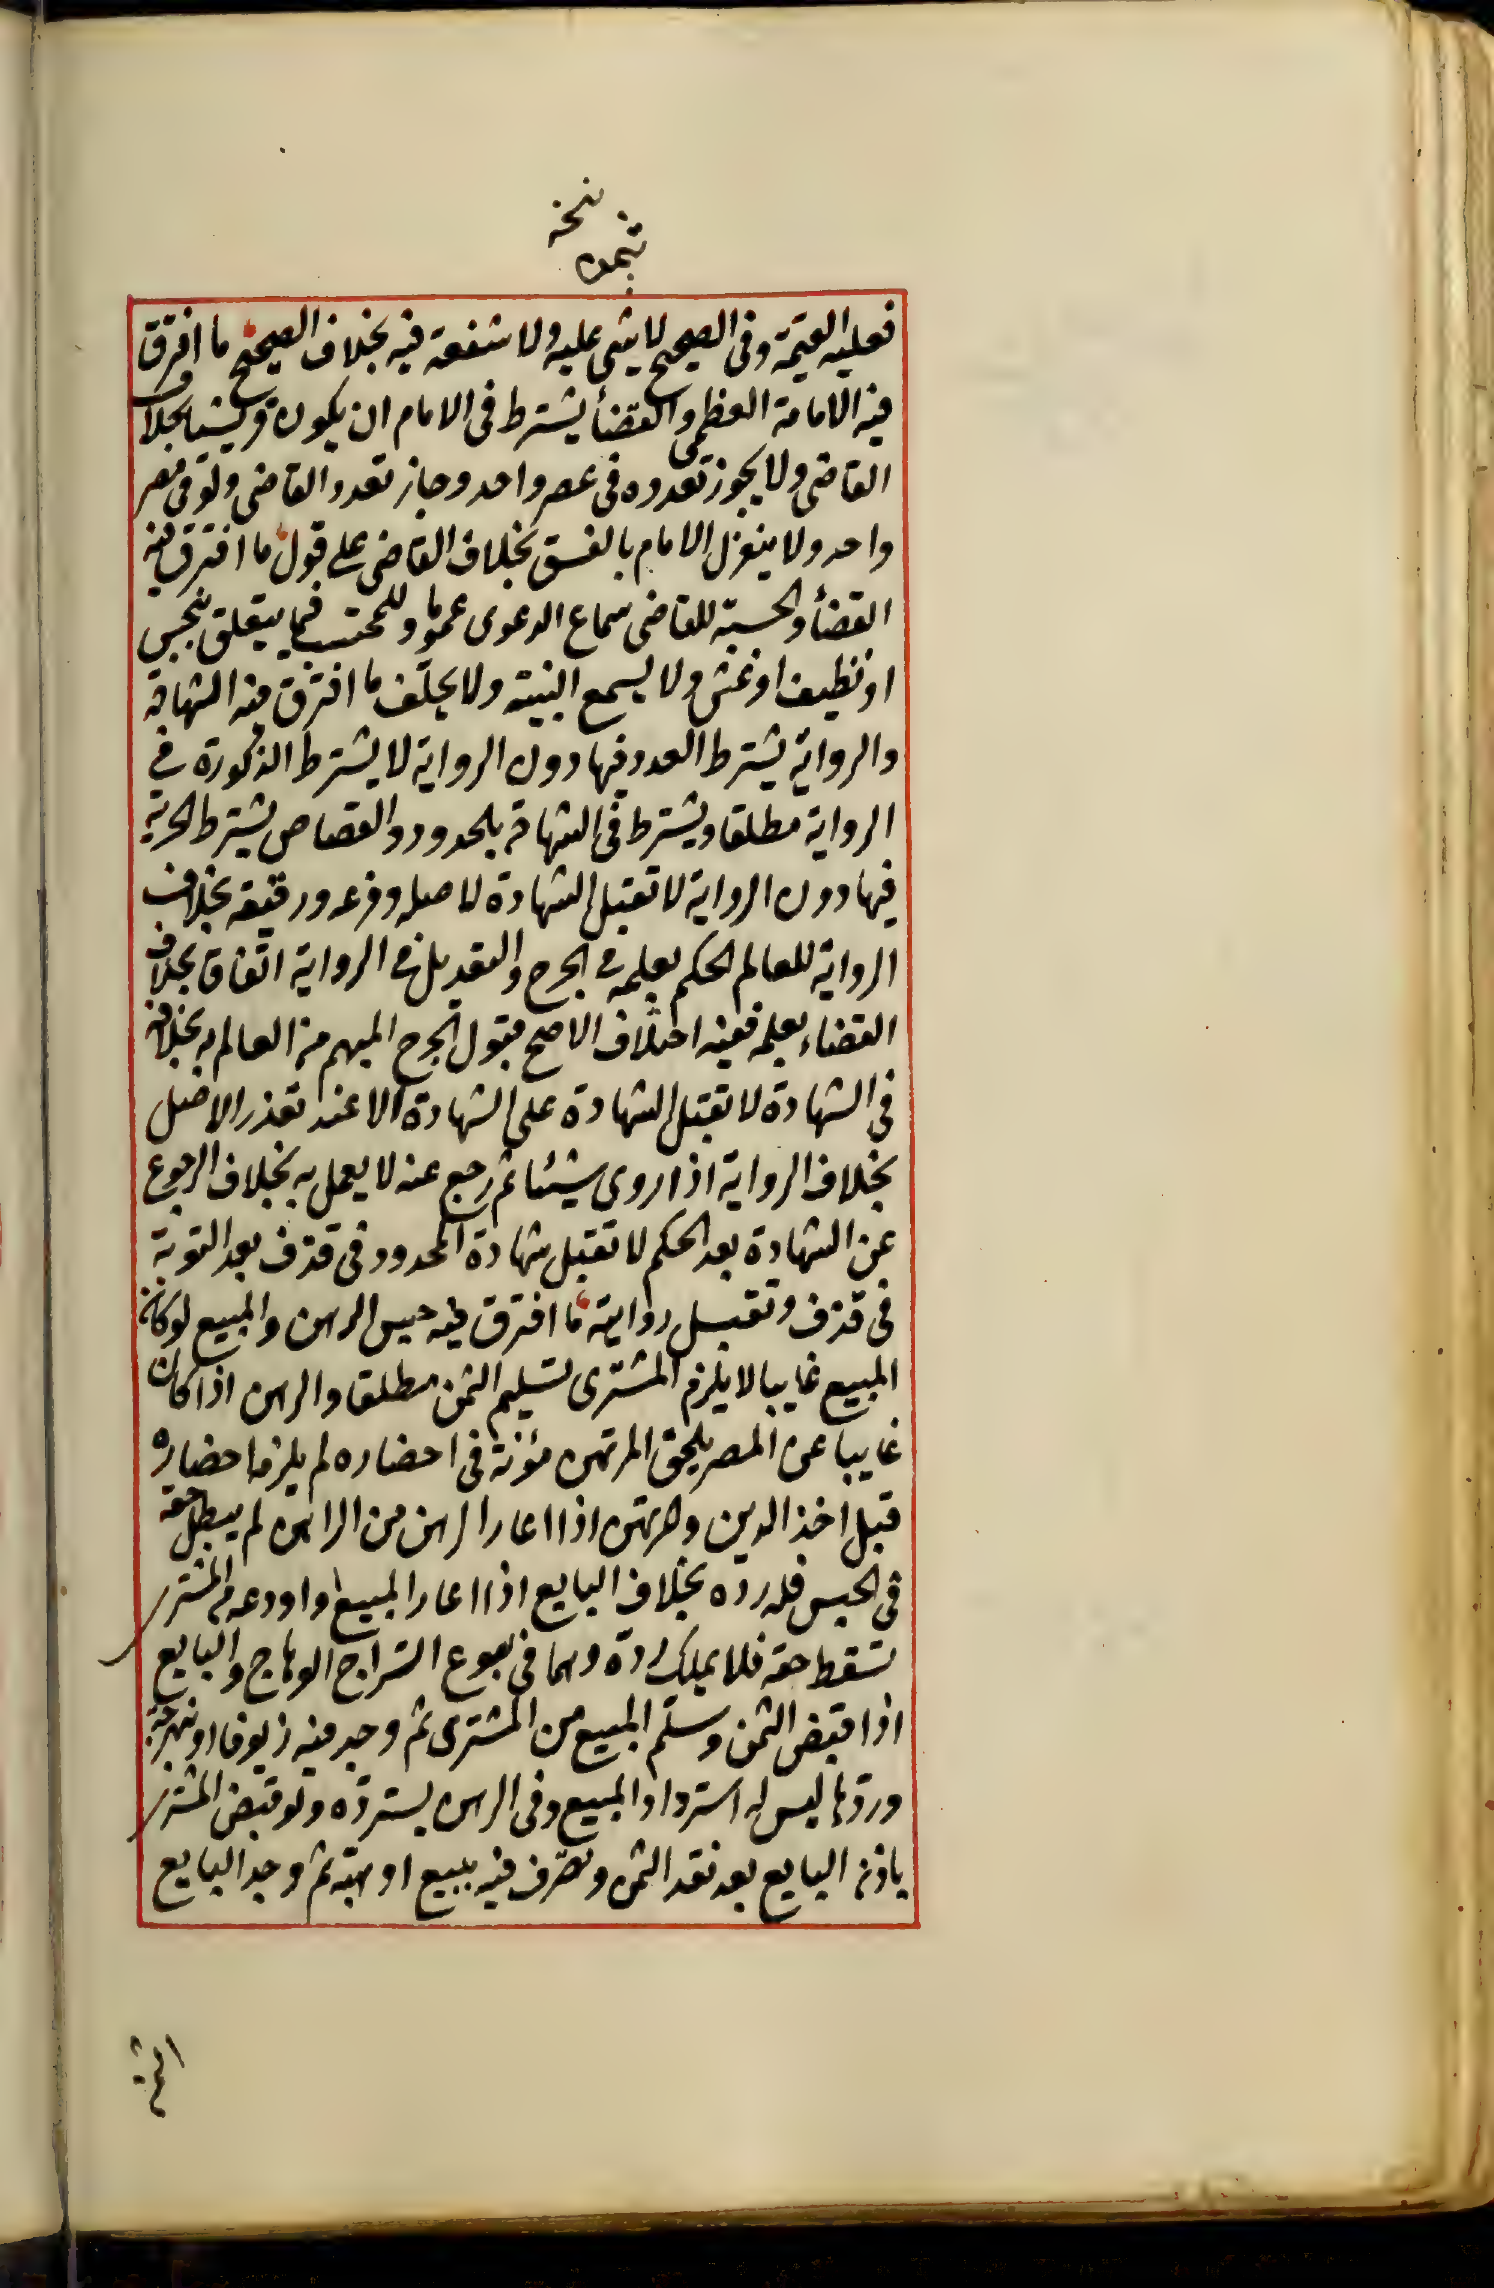 نسخه
بثمنه
فعليه القيمة وفى الصحيح لا شى عليه ولا شفعة فيه بخلاف الصحيح ما افترق
فيه الامامة العظمى والقضأ يشترط فى الامام ان يكون قريشيا بخلاف
القاضى ولا يجوز تعدده فى عصر واحد وجاز تعدد القاضى ولو فى مصر
واحد ولا ينعزل الامام بالفسق بخلاف القاضى على قول ما افترق فيه
القضأ والحسبة للقاضى سماع الدعوى عموما وللمحتسب فيما يتعلق ببخس
او تطفيف او غش ولا يسمع البينة ولا يحلّف ما افترق فيه الشهادة
والرواية يشترط العدد فيها دون الرواية لا يشترط الذكورة فى
الرواية مطلقا ويشترط فى الشهادة بالحدود والقصاص يشترط الحرية
فيها دون الرواية لا تقبل الشهادة لاصله وفرعه ورقيقه بخلاف
الرواية للعالم الحكم بعلمه فى الجرح والتعديل فى الرواية اتفاق بخلاف
القضاء بعلمه ففيه اختلاف الاصح قبول الجرح المبهم من العالم به بخلافه
فى الشهادة لا تقبل الشهادة على الشهادة الا عند تعذر الاصل
بخلاف الرواية اذا روى شيئا ثم رجع عنه لا يعمل به بخلاف الرجوع
عن الشهادة بعد الحكم لا تقبل شهادة المحدود فى قذف بعد التوبة
فى قذف وتقبل روايته ما افترق فيه حبس الرهن والمبيع لو كان
المبيع غايبا لا يلزم المشترى تسليم الثمن مطلقا والرهن اذا كان
غايبا عن المصر يلحق المرتهن مؤنة فى احضاره لم يلزم احضاره
قبل اخذ الدين ومرتهن اذا اعار الرهن من الراهن لم يبطل حقه
فى الحبس فله رده بخلاف البايع اذا اعار المبيع او اودعه من المشترى
تسقط حقه فلا يملك ردّه وهما فى بيوع السّراج الوهاج والبايع
اذا قبض الثمن وسلّم المبيع من المشترى ثم وجد فيه زيوفا او نبهرجة
وردّها ليس له استرداد المبيع وفى الرهن يستردّه ولو قبض المشترى
باذن البايع بعد نقد الثمن وتصرّف فيه ببيع او هبة ثم وجد البايع